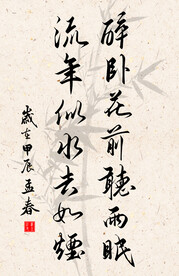 醉卧花前聽雨眠
流年似水去如煙
歲在甲辰孟春